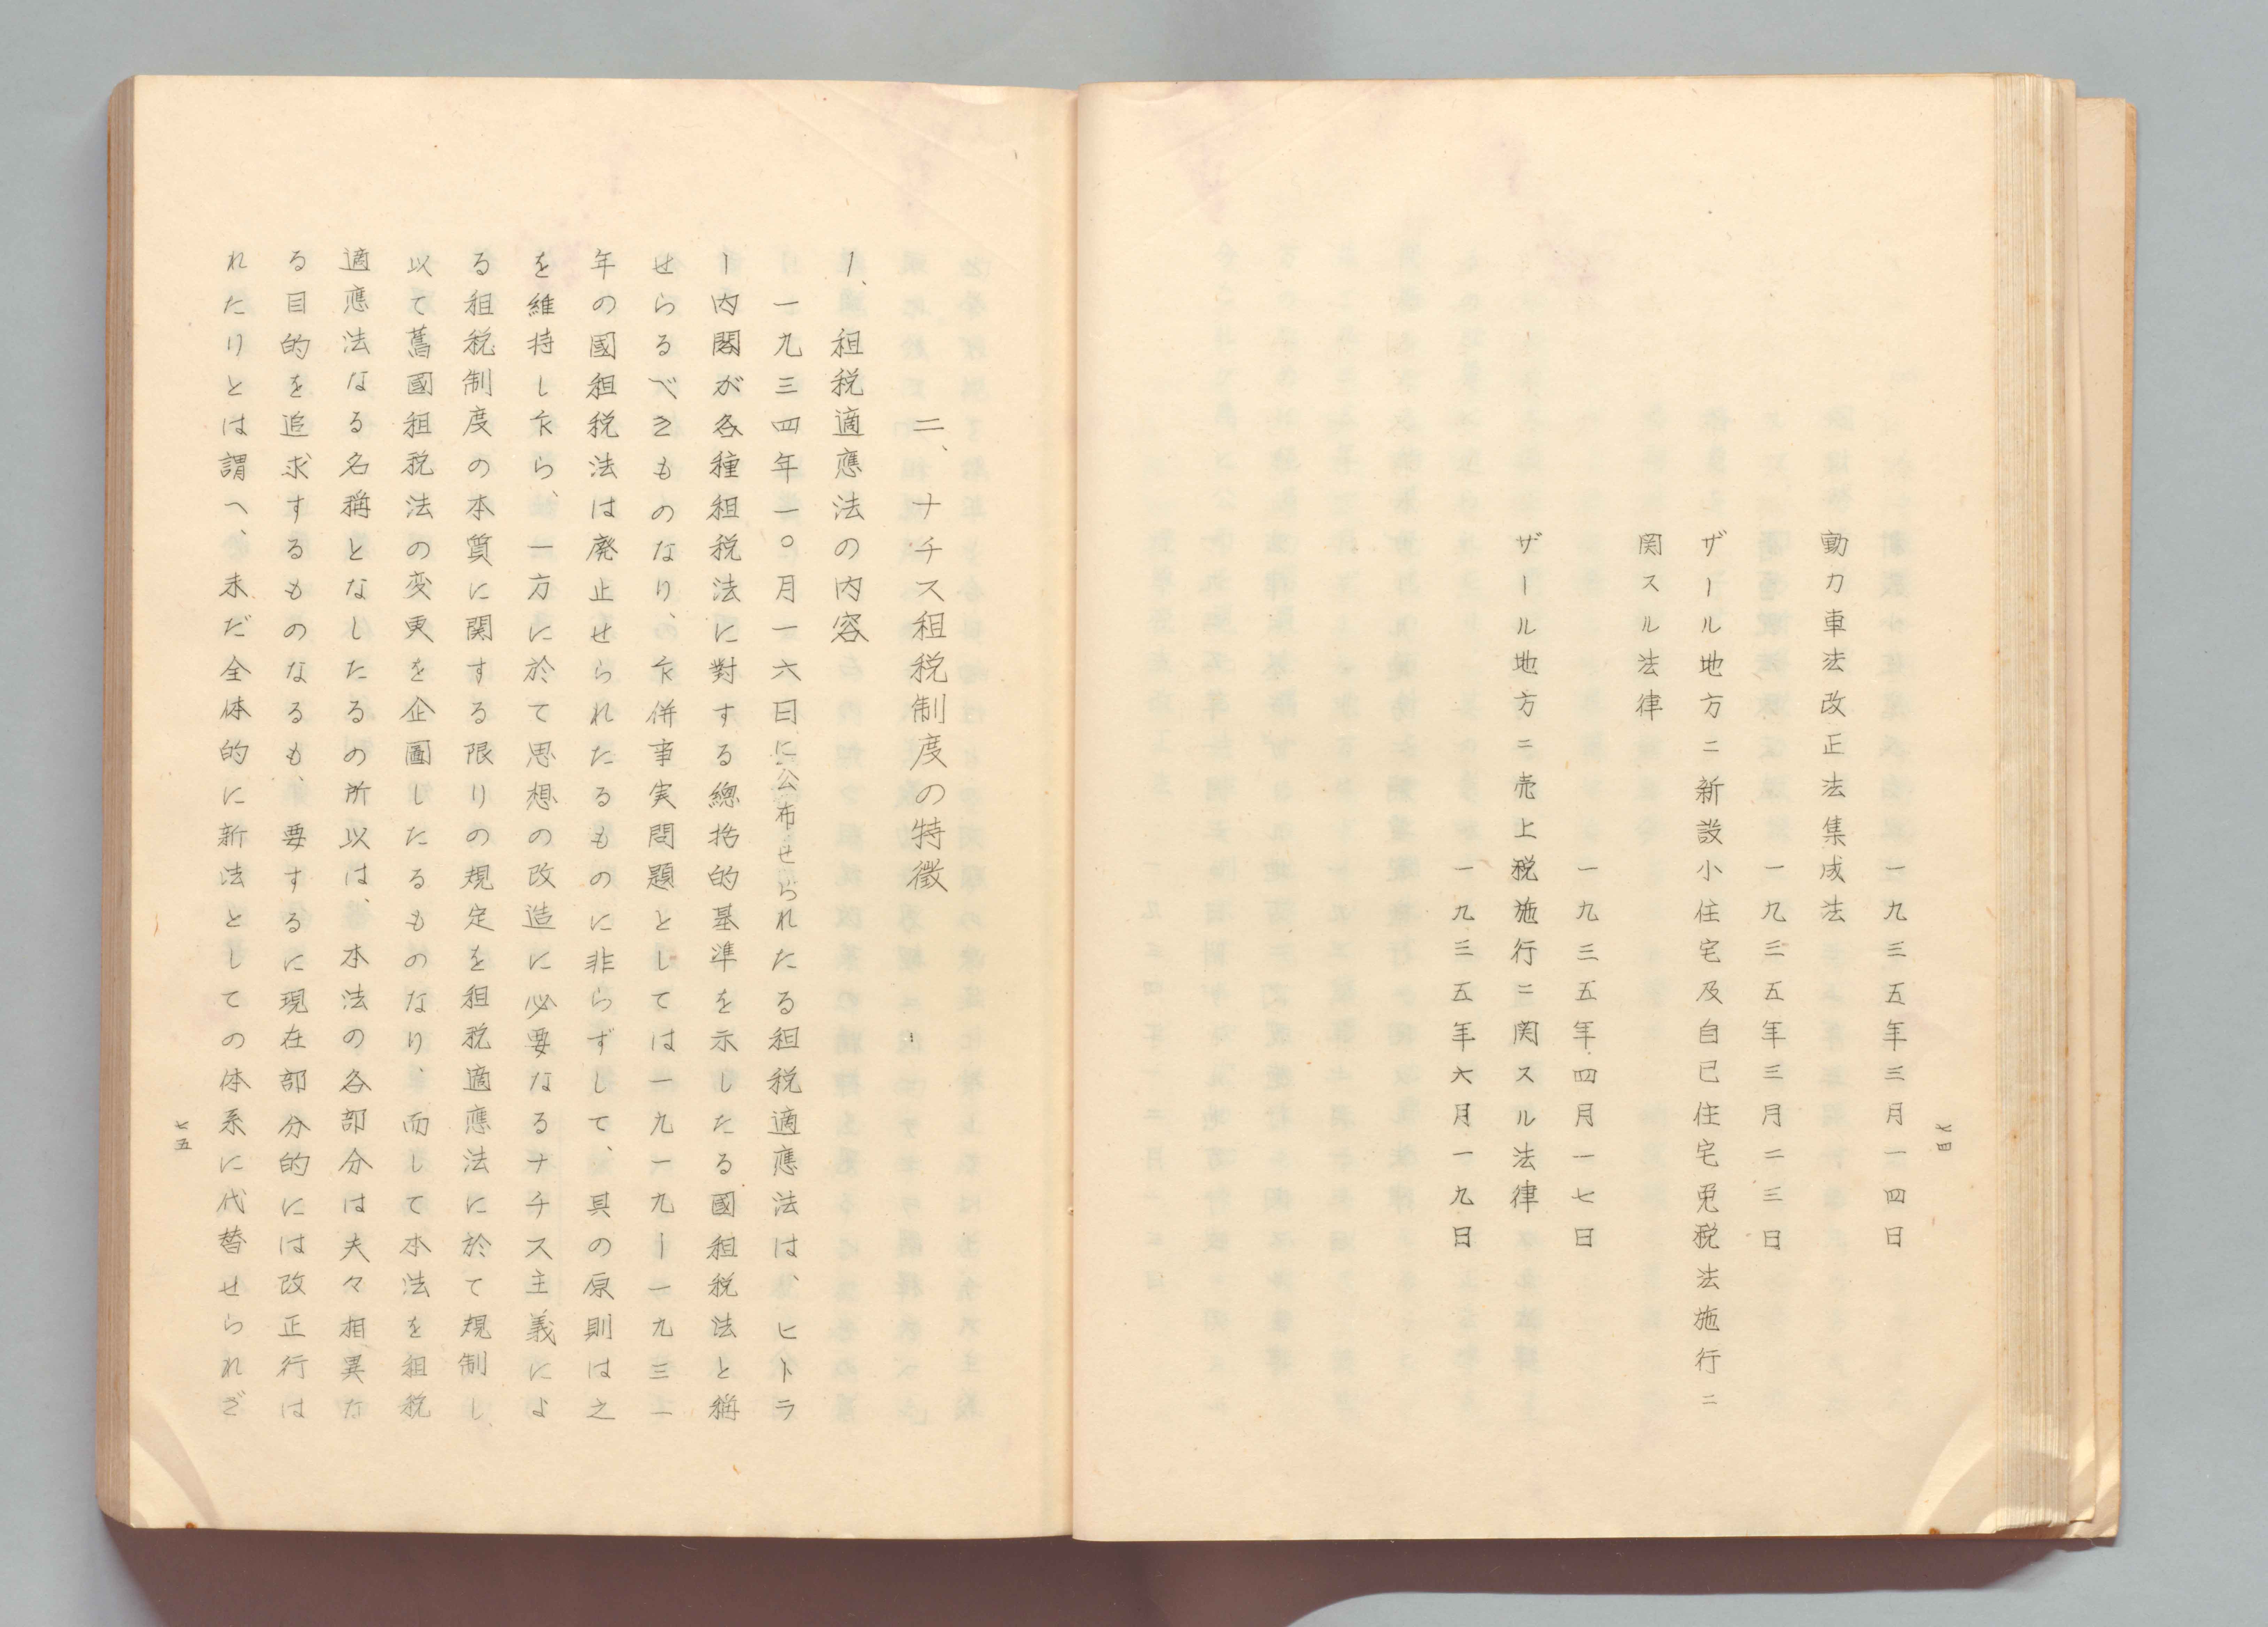 一九三五年三月一四日
動力車法改正法集成法
一九三五年三月二三日
ザール地方ニ新設小住宅及自已住宅免税法施行ニ
関スル法律
一九三五年四月一七日
ザール地方ニ売上税施行ニ関スル法律
一九三五年六月一九日
七四
二、ナチス租税制度の特徴
1、租税適應法の内容
一九三四年一〇月一六日に公布せられたる租税適應法は、ヒトラ
ー内閣が各種租税法に對する總括的基準を示したる國租税法と稱
せらるべきものなり、尓併事実問題としては一九一九ー一九三一
年の國租税法は廃止せられたるものに非らずして、其の原則は之
を維持し尓ら、一方に於て思想の改造に必要なるナチス主義によ
る租税制度の本質に関する限りの規定を租税適應法に於て規制し、
以て舊國租税法の変更を企圖したるものなり、而して本法を租税
適應法なる名稱となしたるの所以は、本法の各部分は夫々相異な
る目的を追求するものなるも、要するに現在部分的には改正行は
れたりとは謂へ、未だ全体的に新法としての体系に代替せられざ
七五